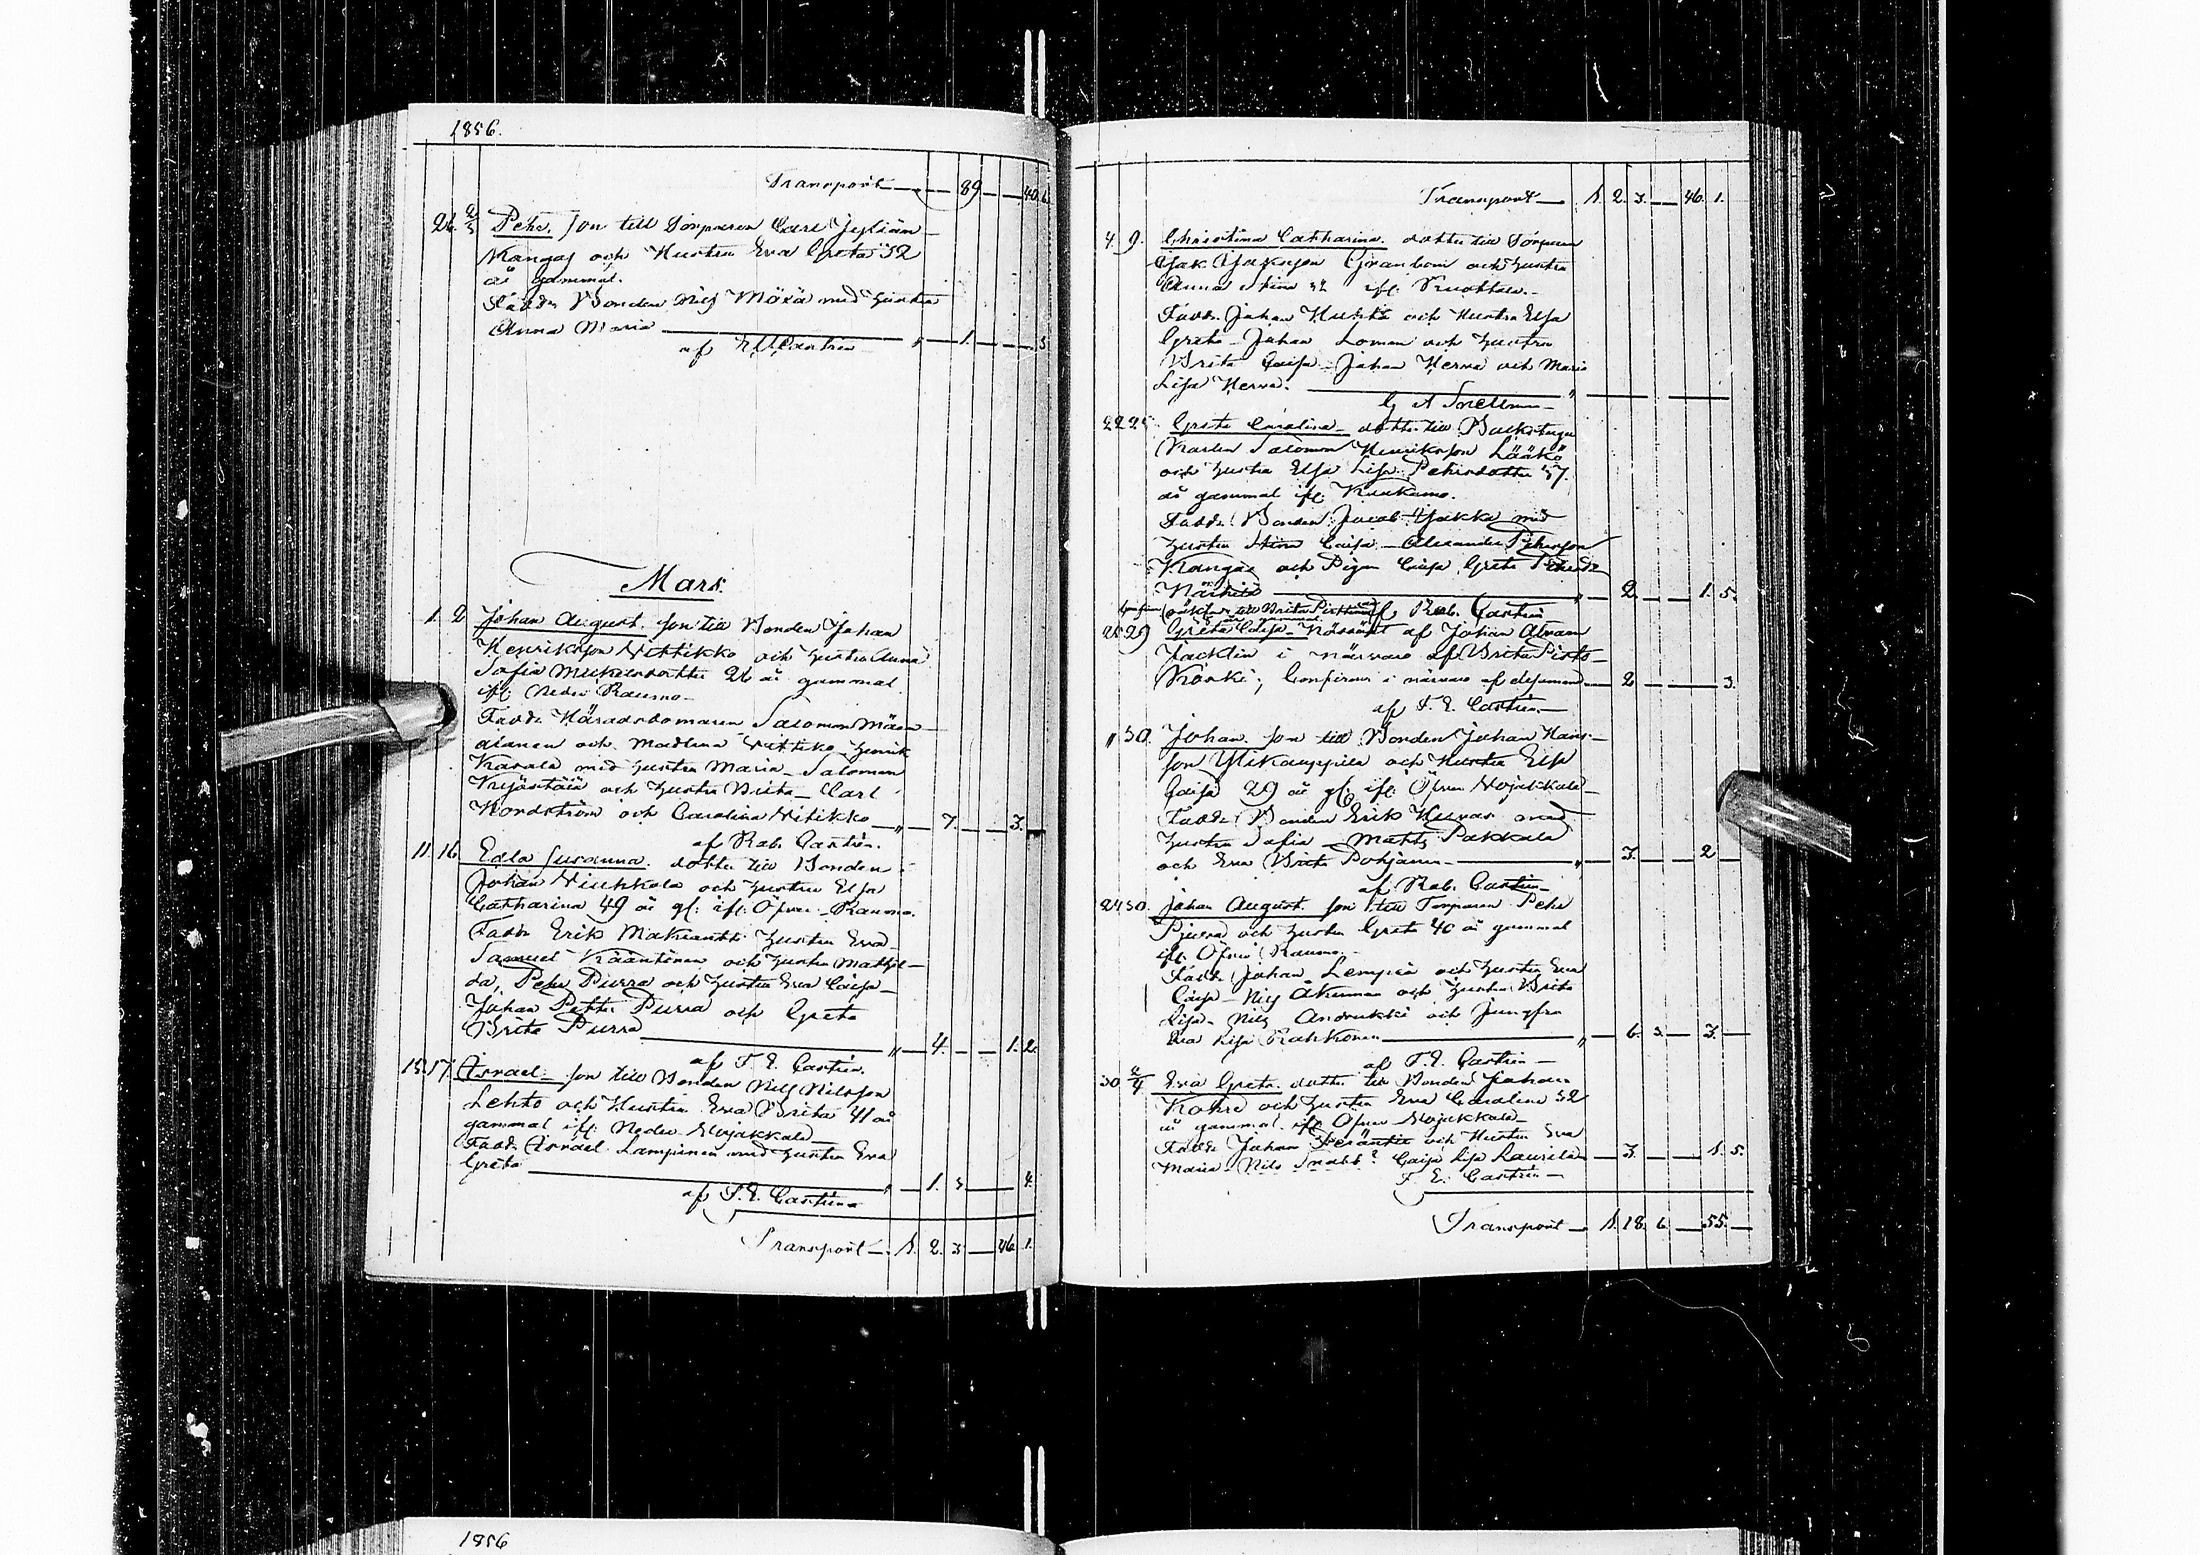 1856.
Transport — „ — 89 — — 40. 6.
26. 2/3 Pehr. son till Torparen Carl
Kangas och Hustru Eva Greta 32
år gammal.
Fadd. Bonden Nils Määtä med hustru
Anna Maria — „ — 1. — — 3.
af Castrén
Mars.
1. 2 Johan August. son till Bonden Johan
Henriksson Vittikko och hustru Anna
Sofia 26 år gammal
ifr. Nedre Raumo —
Fadd. Häradsdomaren Salomon
och Madlena Vittikko — Henrik
Karala med hustru Maria — Salomon
och hustru Brita — Carl
Nordström och Carolina Vitikko — „ — 7. — — 3. —
af Rab. Castrén.
11. 16. Edla Susanna. dotter till Bonden
Johan Viukkola och hustru Elsa
Catharina 49 år gl: ifr. Öfver — Raumo.
Fadd. Erik hustru Eva —
Samuel Kääntinen och hustru Mathil-
da, Pehr Purra och hustru Eva Caisa —
Johan Petter Purra och Greta
Brita Purra — „ — 4. — — 1. 2.
af F. E. Castrén.
15. 17. Israel — son till Bonden Nils Nilsson
Lehto och Hustru Eva Brita 41 år
gammal ifr. Neder Vojakkala —
Fadd. Israel Lampinen med hustru Eva
Greta — „ — 1. 3 — — 4.
af F. E. Castrén
Transport — 1. 2. 3 — 46. 1.
Transport — 1. 2. 3. — 46. 1.
4. 9. Christina Catharina. dotter till Torparen
Isak Isaksson Granbom och hustru
Anna Stina 32 ifr.
Fadd. Johan Huhta och Hustru Elsa
Greta — Johan Loman och hustru
Brita Caisa — Johan Herva och Maria
Lisa Herva. — „ —
G A Snellman
22 25. Greta Carolina — dotter till Backstugu
Karlen Salomon Henriksson Lääkö
och hustru Elsa Lisa Pehrsdotter 37.
år gammal ifr. Kuukamo.
Fadd. Bonden Jacob Yakka med
hustru Stina Caisa — Alexander Pehrsson
Kangas och Pigan Caisa Greta
— „ — 2. — — 1. 5.
af Rab. Castrén
25 29 Greta Caisa — af Johan Abram
Jacklin i närvaro af Brita Pirtti-
Koski; Confirm. i närvaro af — 2 — — 3.
af F. E. Castrén —
„ 30. Johan. son till Bonden Johan Hans-
son Ylikauppila och Hustru Elsa
Caisa 29 år gl: ifr: Öfver Vojakkala —
Fadd. Bonden Erik Hervas med
hustru Sofia — Matts Pakkala
och Eva Brita Pohjanen — „ — 3. — — 2 —
af Rab. Castrén —
24 30. Johan August. son till Torparen Pehr
och hustru Greta 40 år gammal
ifr. Öfver Raumo. —
Fadd. Johan Lempiä och hustru Eva
Caisa — Nils Åkerman och hustru Brita
Lisa — Nils Andrukki och Jungfru
Eva Lisa Rahkonen — „ — 6. 3 — 3. —
af F. E. Castrén —
30 2/4 Eva Greta. dotter till Bonden Johan
Kohre och hustru Eva Carolina 32
år gammal. ifr Öfver Vojakkala —
Fadd. Johan och Hustru Eva
Maria — Nils Snabb? Caisa Lisa Laurila — 3. — — 1. 5.
F. E. Castrén —
Transport — 1. 18. 6. — 55. —
1856